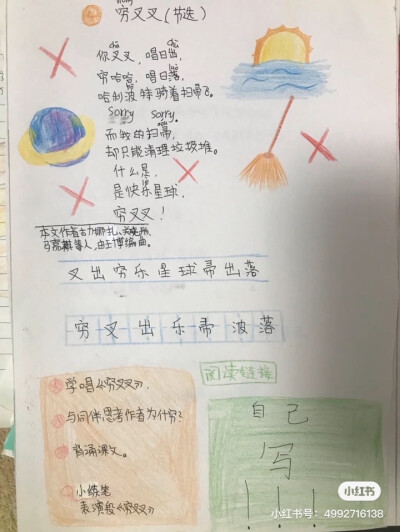 ④ 穷叉叉(节选)
chū
你叉叉,唱日出,
穷哈哈,唱日落,
哈利波特骑着扫帚飞。
Sorry sorry.
而我的扫帚,
却只能清理垃圾堆。
什么是,
是快乐星球,
穷叉叉!
马嘉祺等人,由王博编曲。
叉出穷乐星球帚出落
穷叉出乐帚波落
学唱《穷叉叉》,
与同伴思考作者为什穷?
背诵课文。
小练笔
表演段《穷叉叉》
阅读链接
自己
写
!!!
小红书
小红书号:4992716138